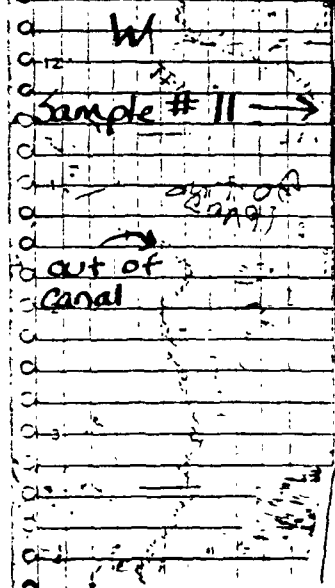 W
12
Sample # 11 →
1
out of
canal
3